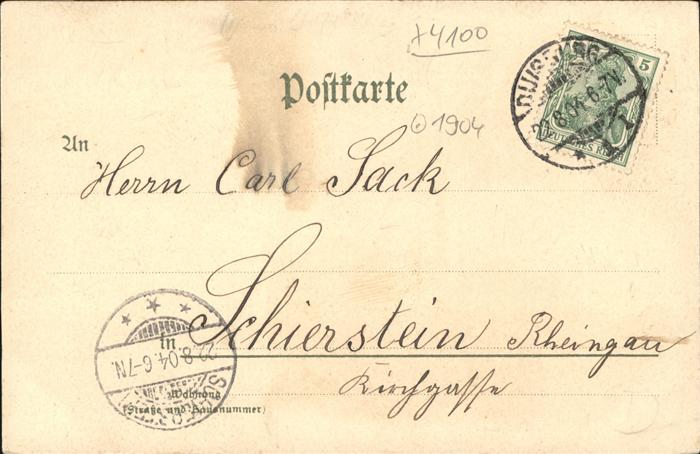 +4100
Postkarte
⊙ 1904
An
Herrn Carl Sack
in Schierstein Rheingau
Kirchgasse
Wohnung
(Straße und Hausnummer)
DUISBURG
22.8.04.6-7N.
5
DEUTSCHES REICH
22.8.04.6-7N.